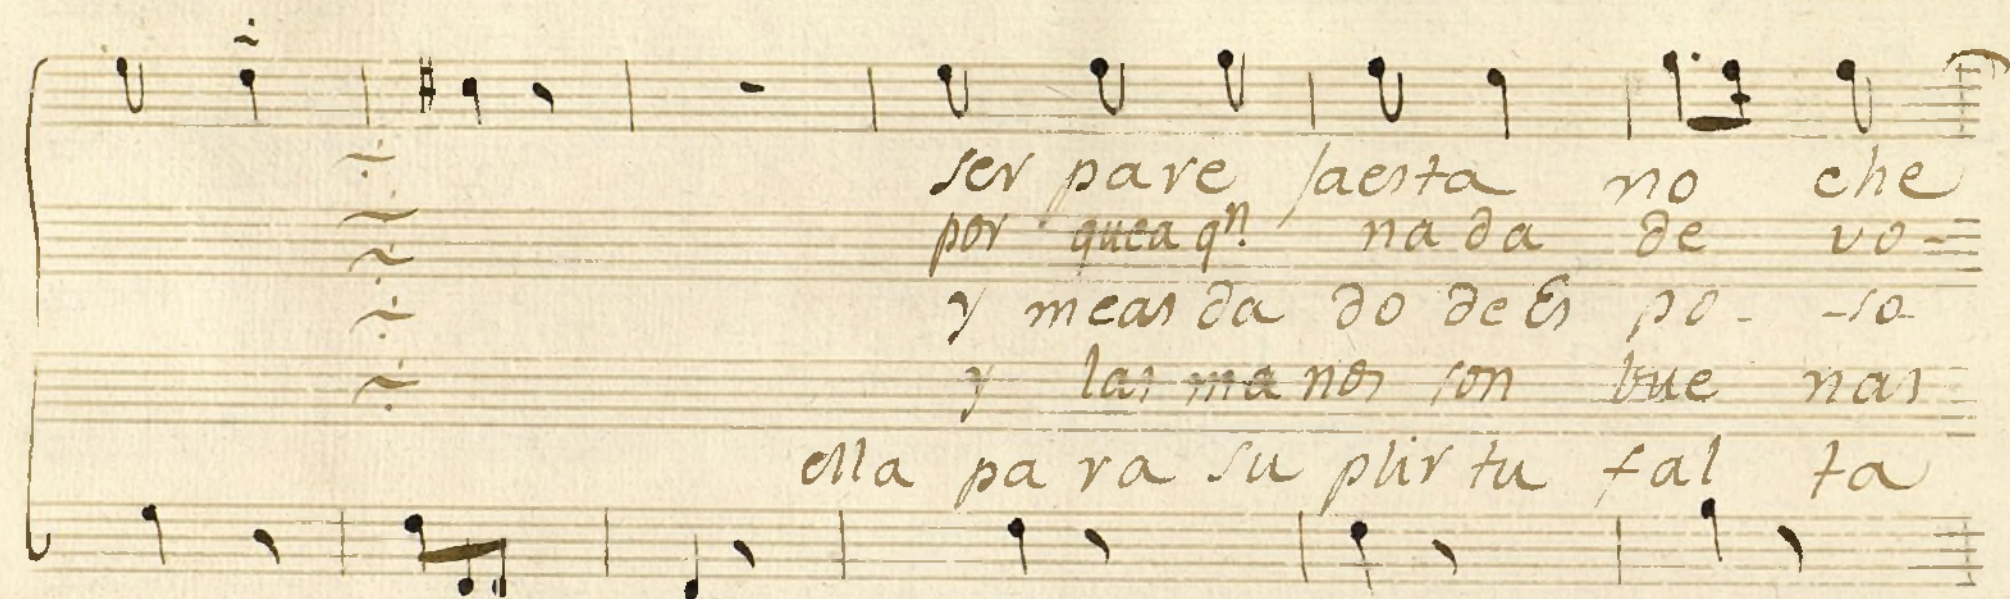 ser pare saesta no che
por quea qn. na da de vo-
y meas da do de Es po - - so
y las ma nos son bue nas
ella pa ra su plir tu fal ta